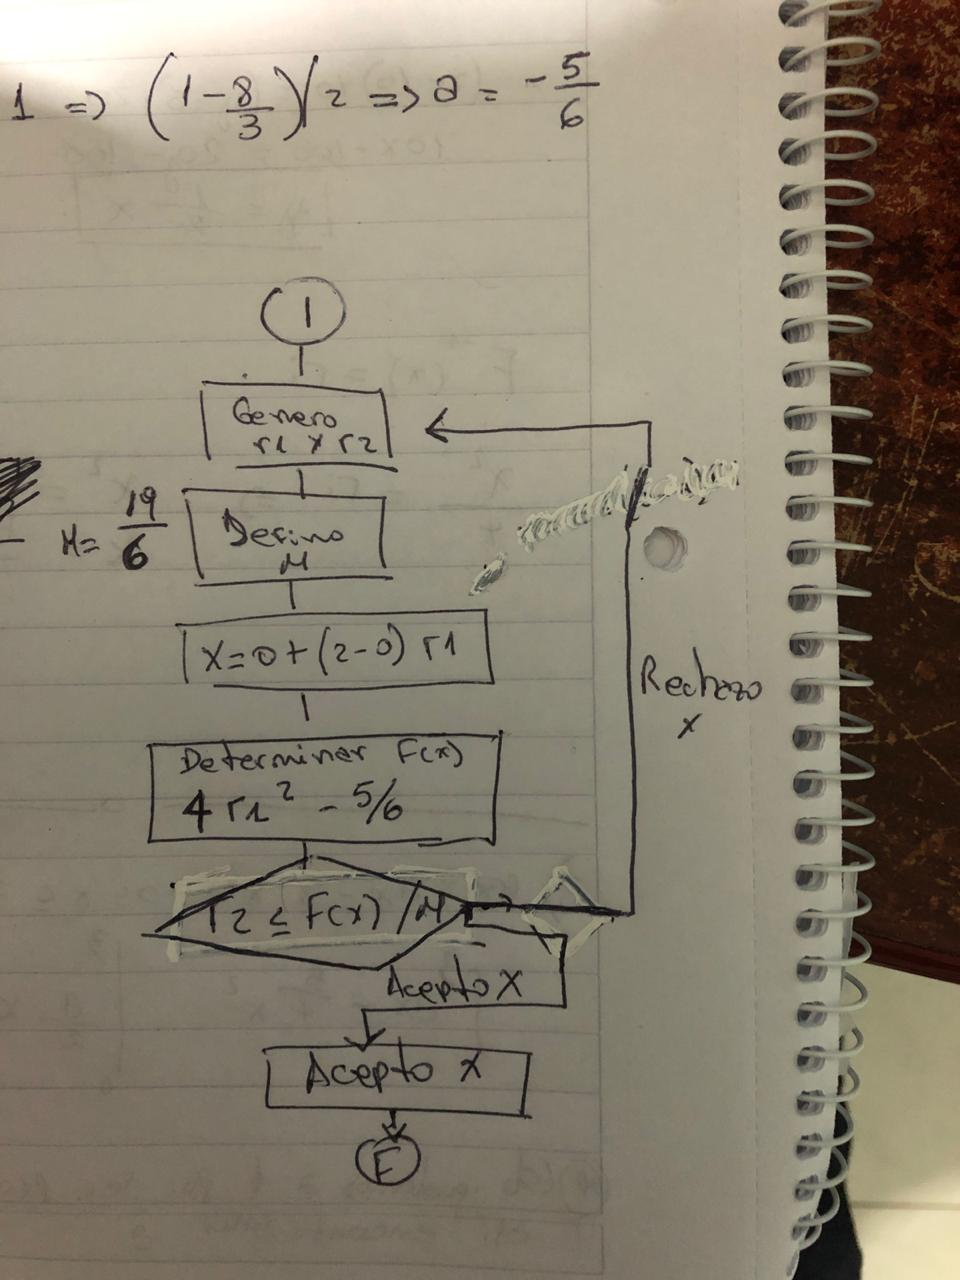 1 => (1 - 8/3)/2 => a = -5/6
1
Genero
r1 y r2
M = 19/6
Defino
M
X = 0 + (2-0) r1
Rechazo
x
Determinar F(x)
4 r1² - 5/6
r2 ≤ F(x) / M
Acepto X
Acepto X
F